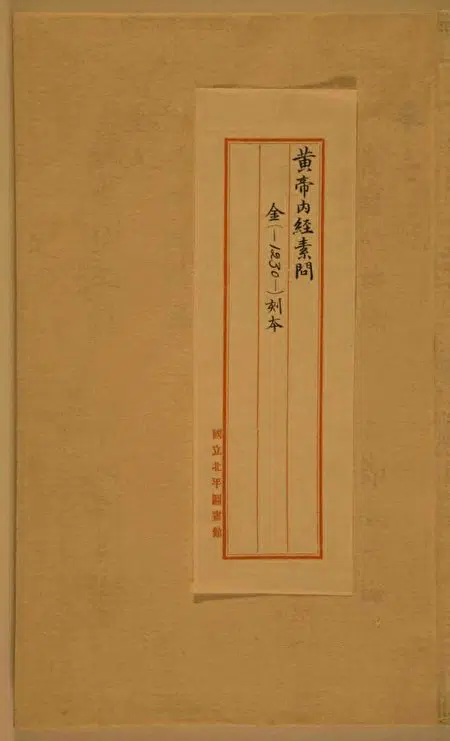 黄帝内經素問
金(—1230—)刻本
國立北平圖書館